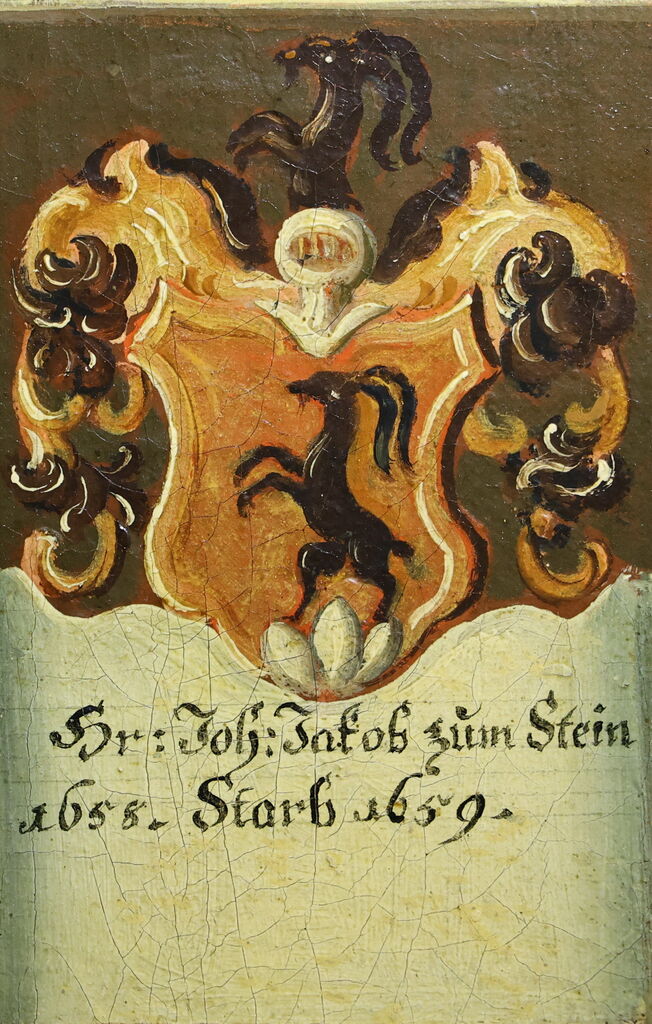 Hr: Joh: Jakob zum Stein
1655. Starb 1659.